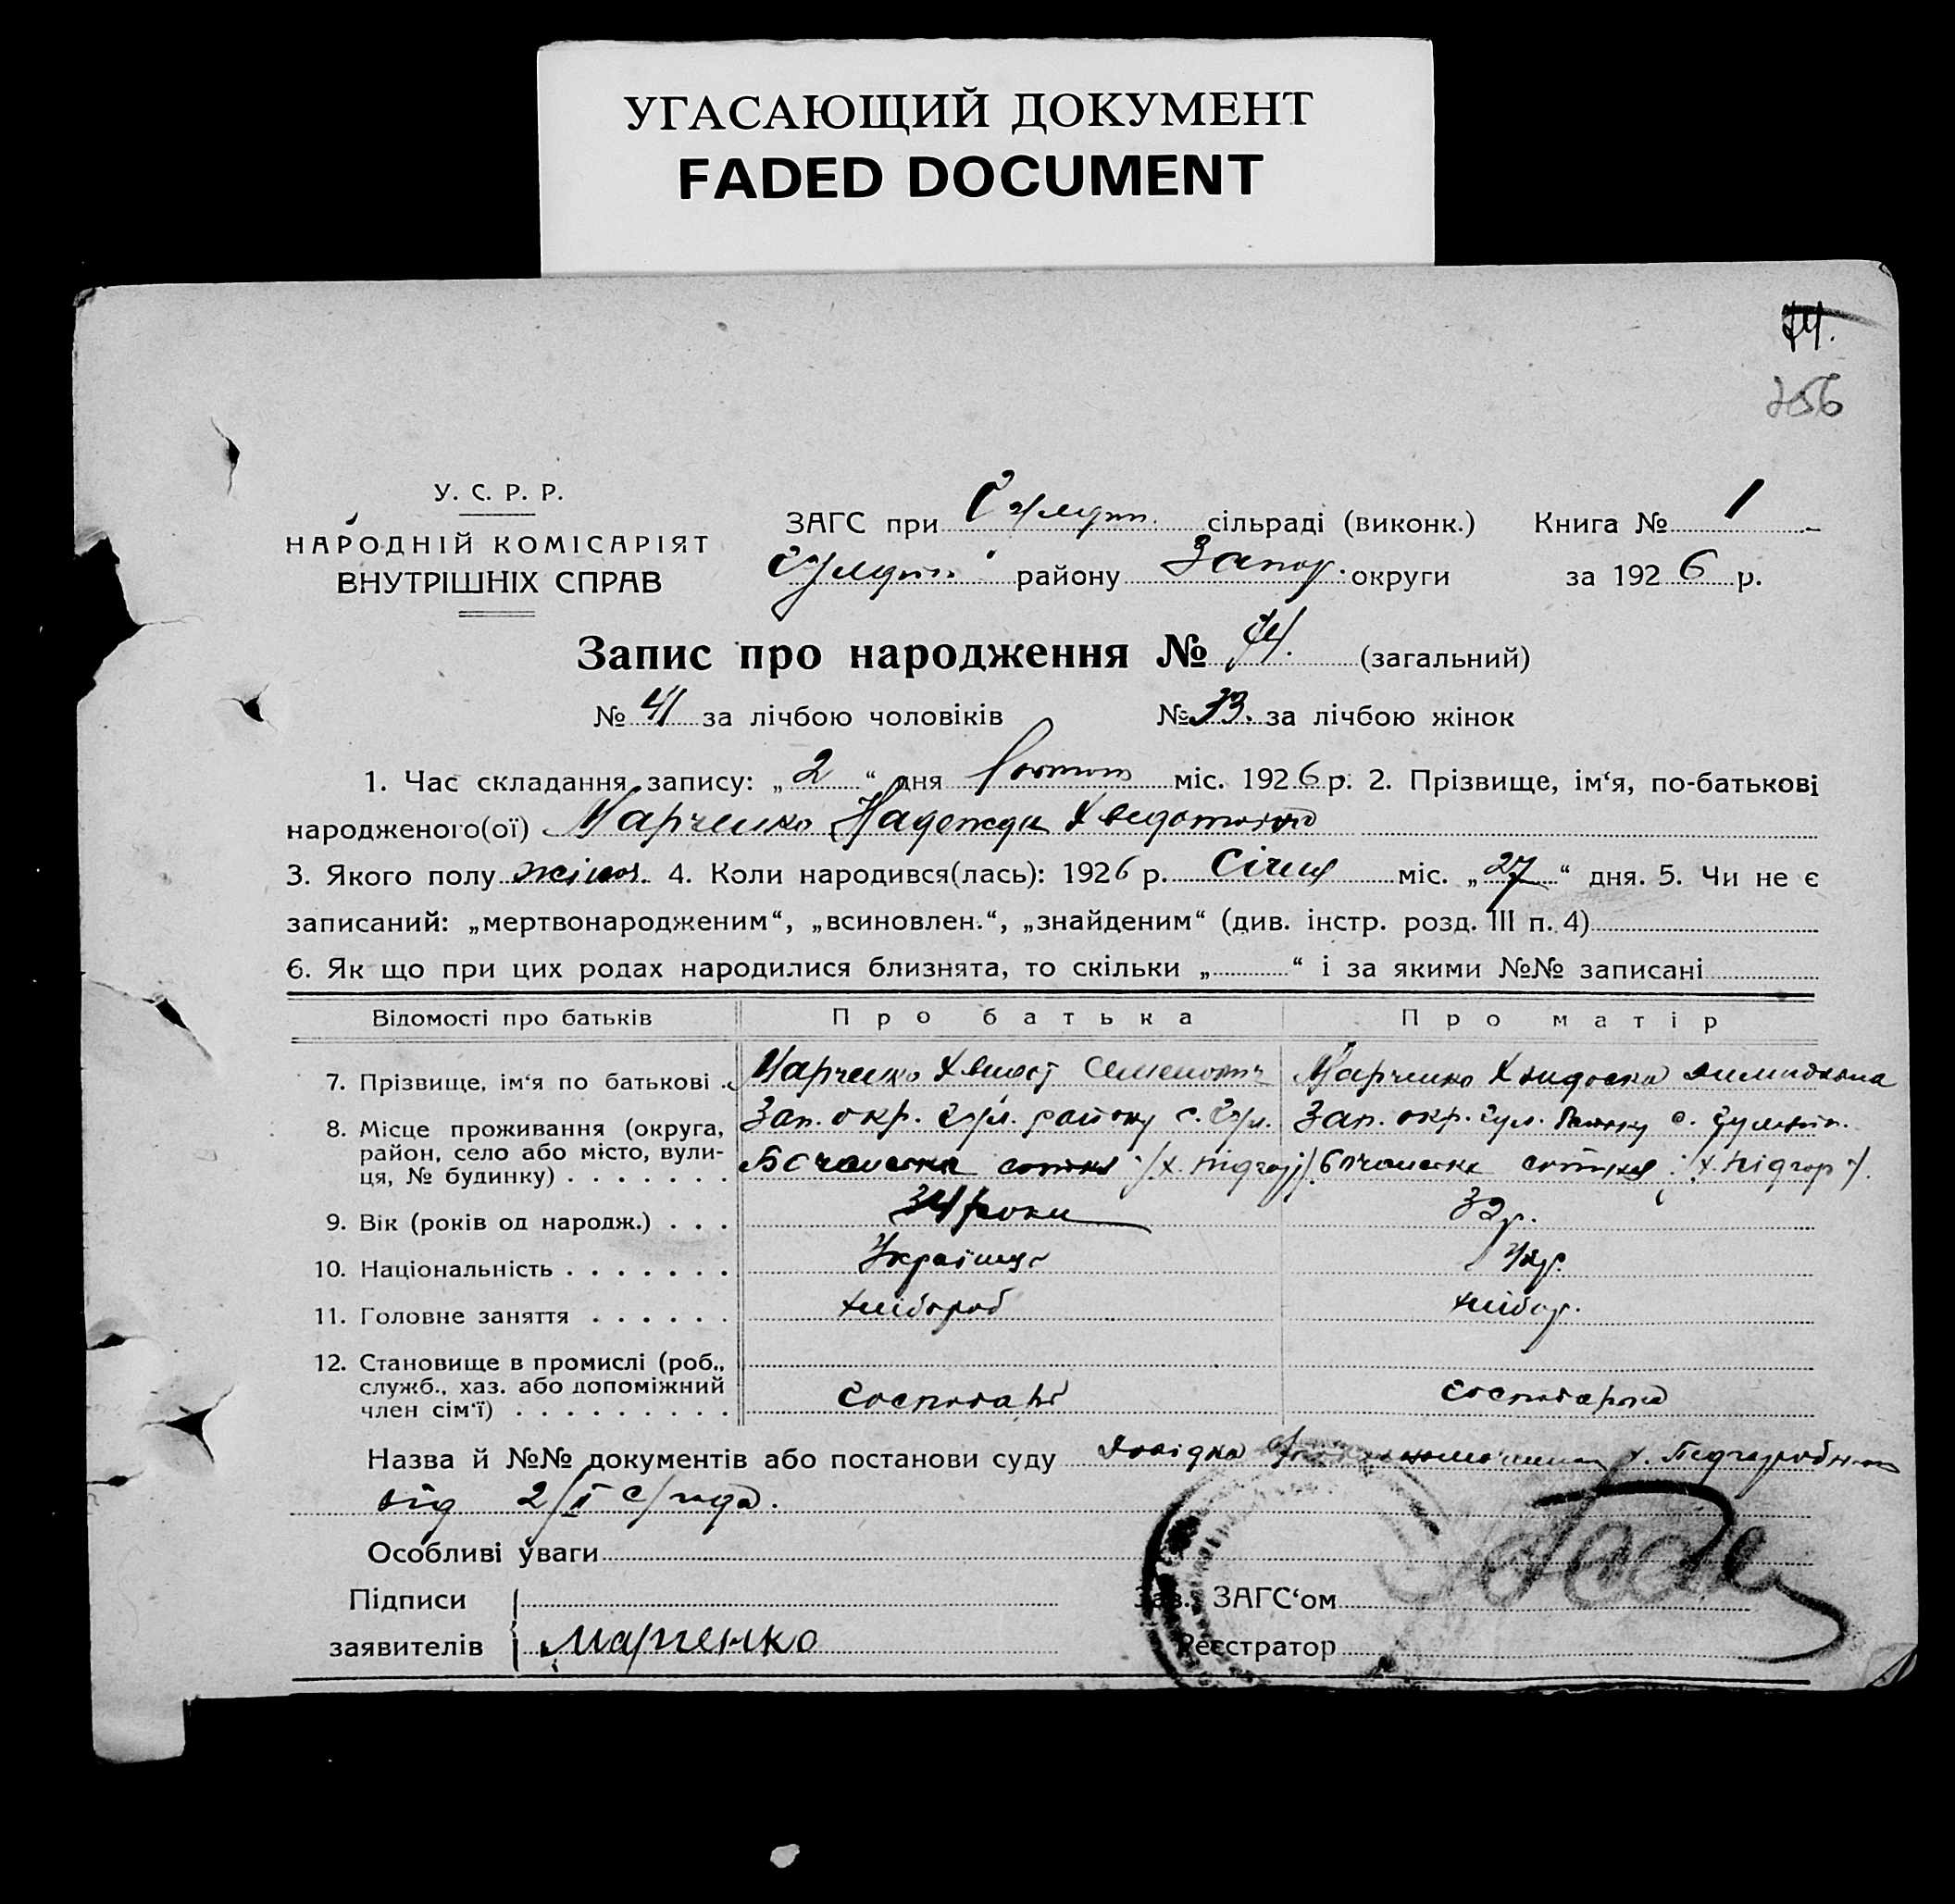 УГАСАЮЩИЙ ДОКУМЕНТ
FADED DOCUMENT
74.
256
У. С. Р. Р.
НАРОДНІЙ КОМІСАРІЯТ
ВНУТРІШНІХ СПРАВ
ЗАГС при сільраді (виконк.) Книга № 1
району Запор. округи за 1926 р.
Запис про народження № 74. (загальний)
№ 41 за лічбою чоловіків № 33. за лічбою жінок
1. Час складання запису: „2“ дня лютого міс. 1926 р. 2. Прізвище, ім‘я, по-батькові
народженого(ої) Марченко Надежда Хведотовна
3. Якого полу жіноч. 4. Коли народився(лась): 1926 р. Січня міс. „27“ дня. 5. Чи не є
записаний: „мертвонародженим“, „всиновлен.“, „знайденим“ (див. інстр. розд. III п. 4)
6. Як що при цих родах народилися близнята, то скільки „ “ і за якими №№ записані
Відомості про батьків Про батька Про матір
7. Прізвище, ім‘я по батькові . Марченко Семенович Марченко
8. Місце проживання (округа, район, село або місто, вулиця, № будинку) Зап. окр. Гул. району с. Гул. Зап. окр. Гул. району с.
сотня сотня
9. Вік (років од народж.) . . . 34 роки 32 р.
10. Національність . . . . . . . Українець Укр.
11. Головне заняття . . . . . . хлібороб хлібор.
12. Становище в промислі (роб., служб., хаз. або допоміжний член сім‘ї) . . . . . . . . . Господарь Господарка
Назва й №№ документів або постанови суду Довідка х.
від 2/II с/года.
Особливі уваги
Підписи Зав. ЗАГС‘ом
заявителів Марченко Реєстратор